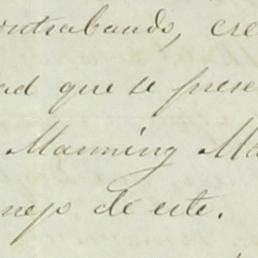 ontrabando, cre
ad que se prese
Manning Ma
nejo de este.